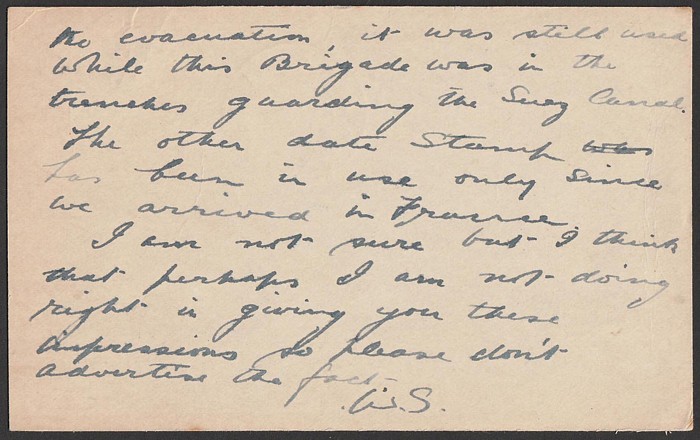 the evacuation, it was still used
while this Brigade was in the
trenches guarding the Suez Canal.
The other date stamp was
has been in use only since
we arrived in France.
I am not sure but I think
that perhaps I am not doing
right in giving you these
impressions so please don't
advertise the fact
W.S.